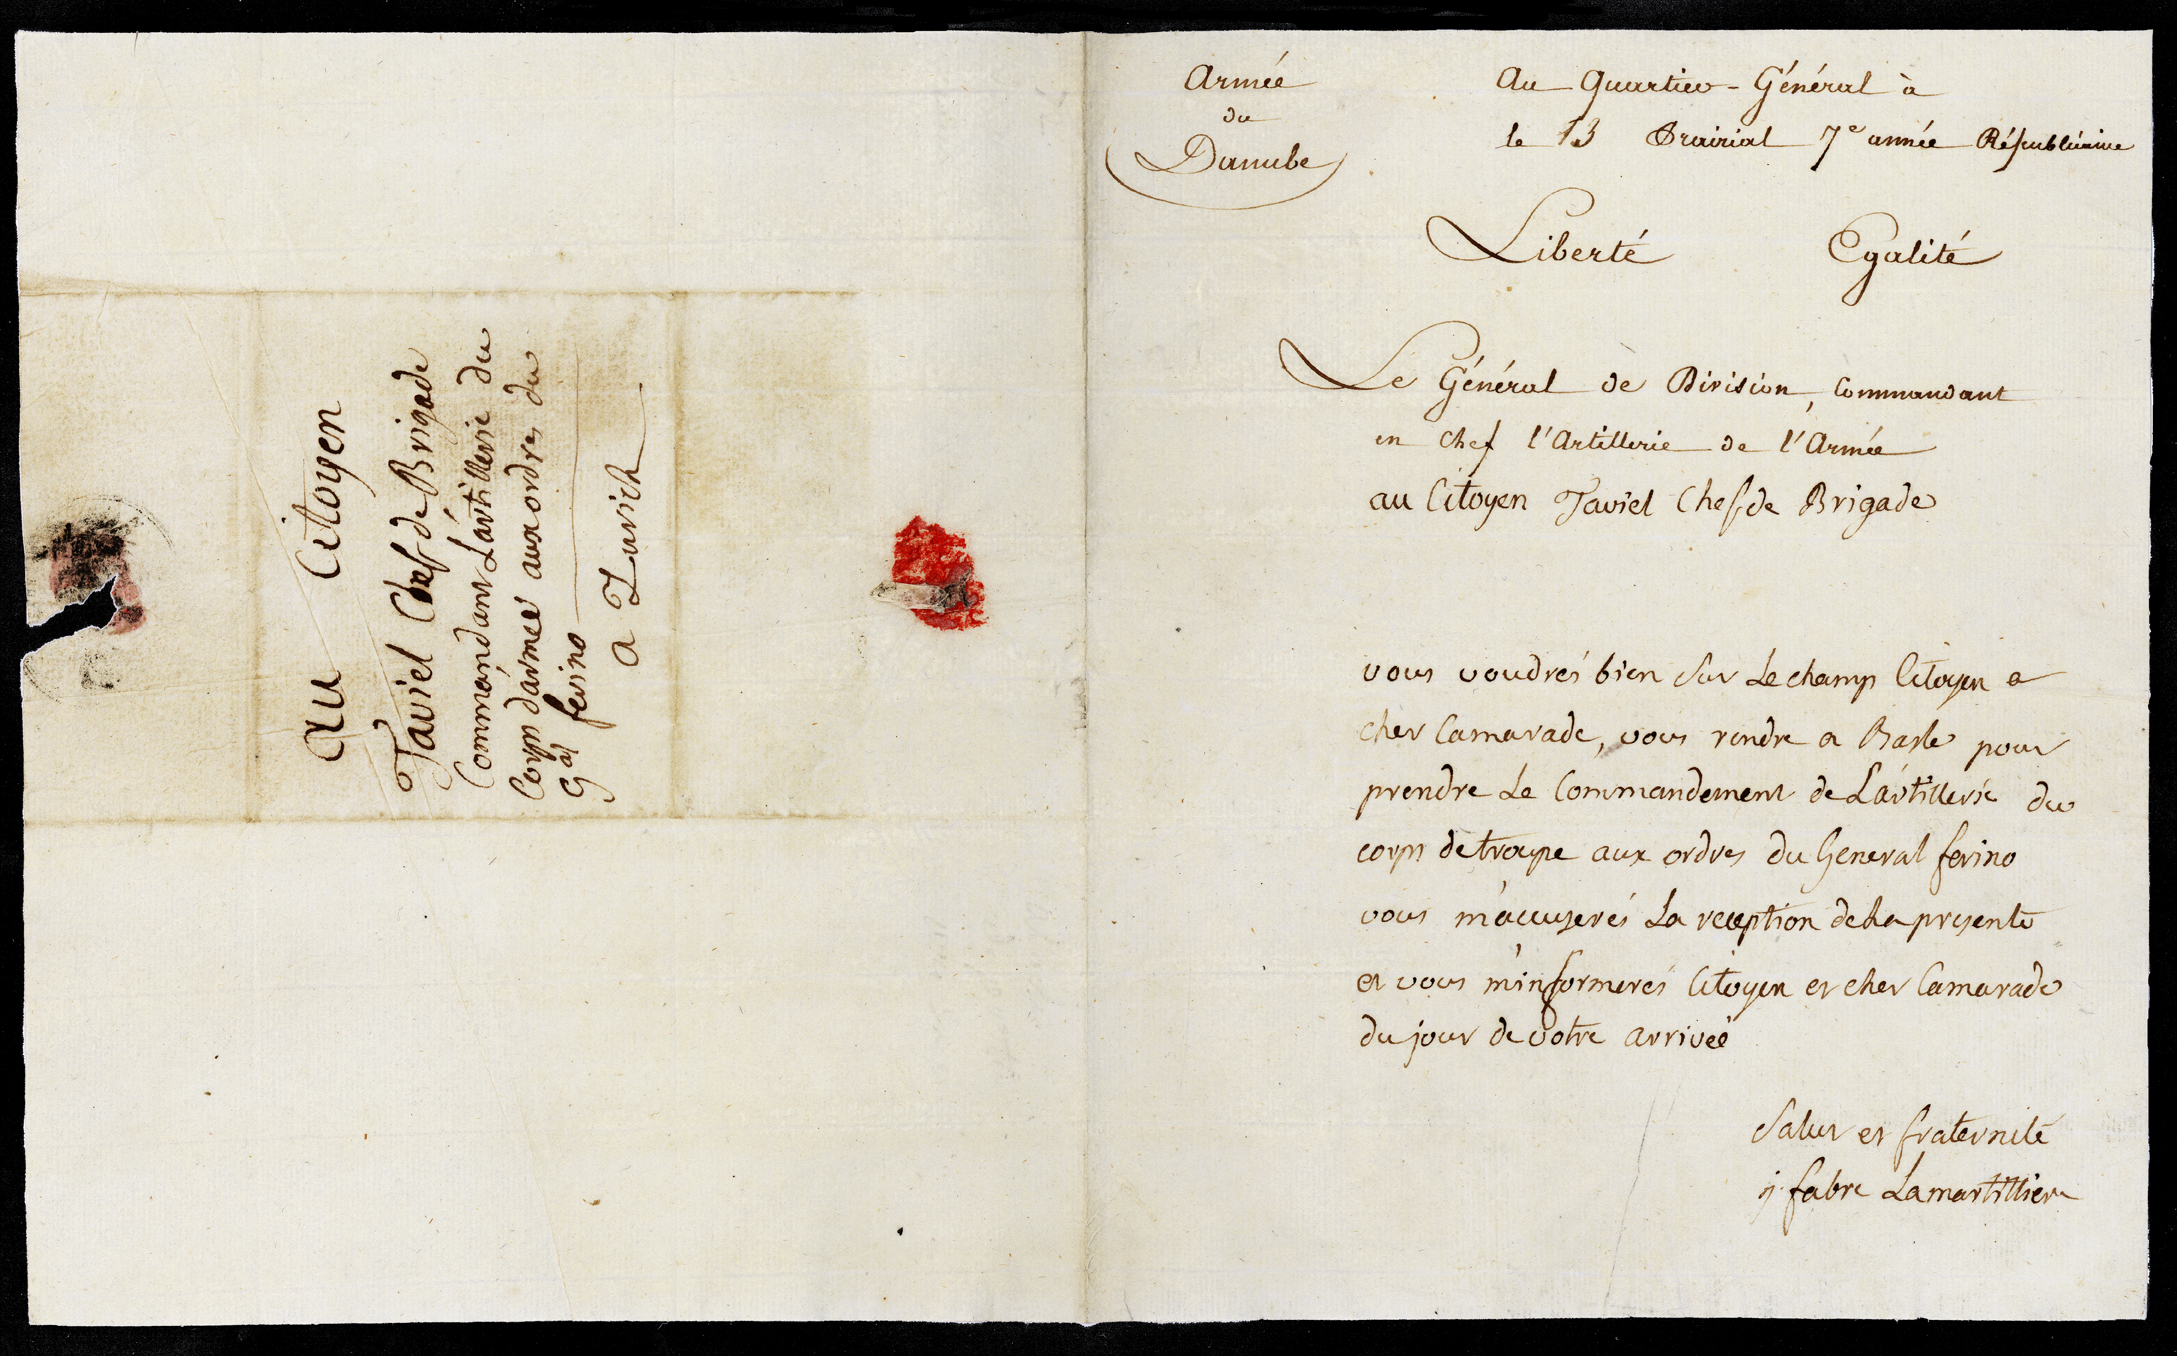 au Citoyen
Taviel Chef de Brigade
Commandant Lartillerie du
Corps d'armee aux ordres du
Gal ferino
a Zurich
Armée
du
Danube
Au Quartier-Général à
le 13 Prairial 7e année Républicaine
Liberté Egalité
Le Général de Division, Commandant
en Chef l'Artillerie de l'Armée
au Citoyen Taviel Chef de Brigade
vous voudrés bien sur Le champ Citoyen e
cher Camarade, vous rendre a Basle pour
prendre Le Commandement de L'artillerie du
corps de troupe aux ordres du General ferino
vous m'accuserés La reception de La presente
et vous m'informerés Citoyen et cher Camarade
du jour de votre arrivée
Salut et fraternité
j. fabre Lamartilliere